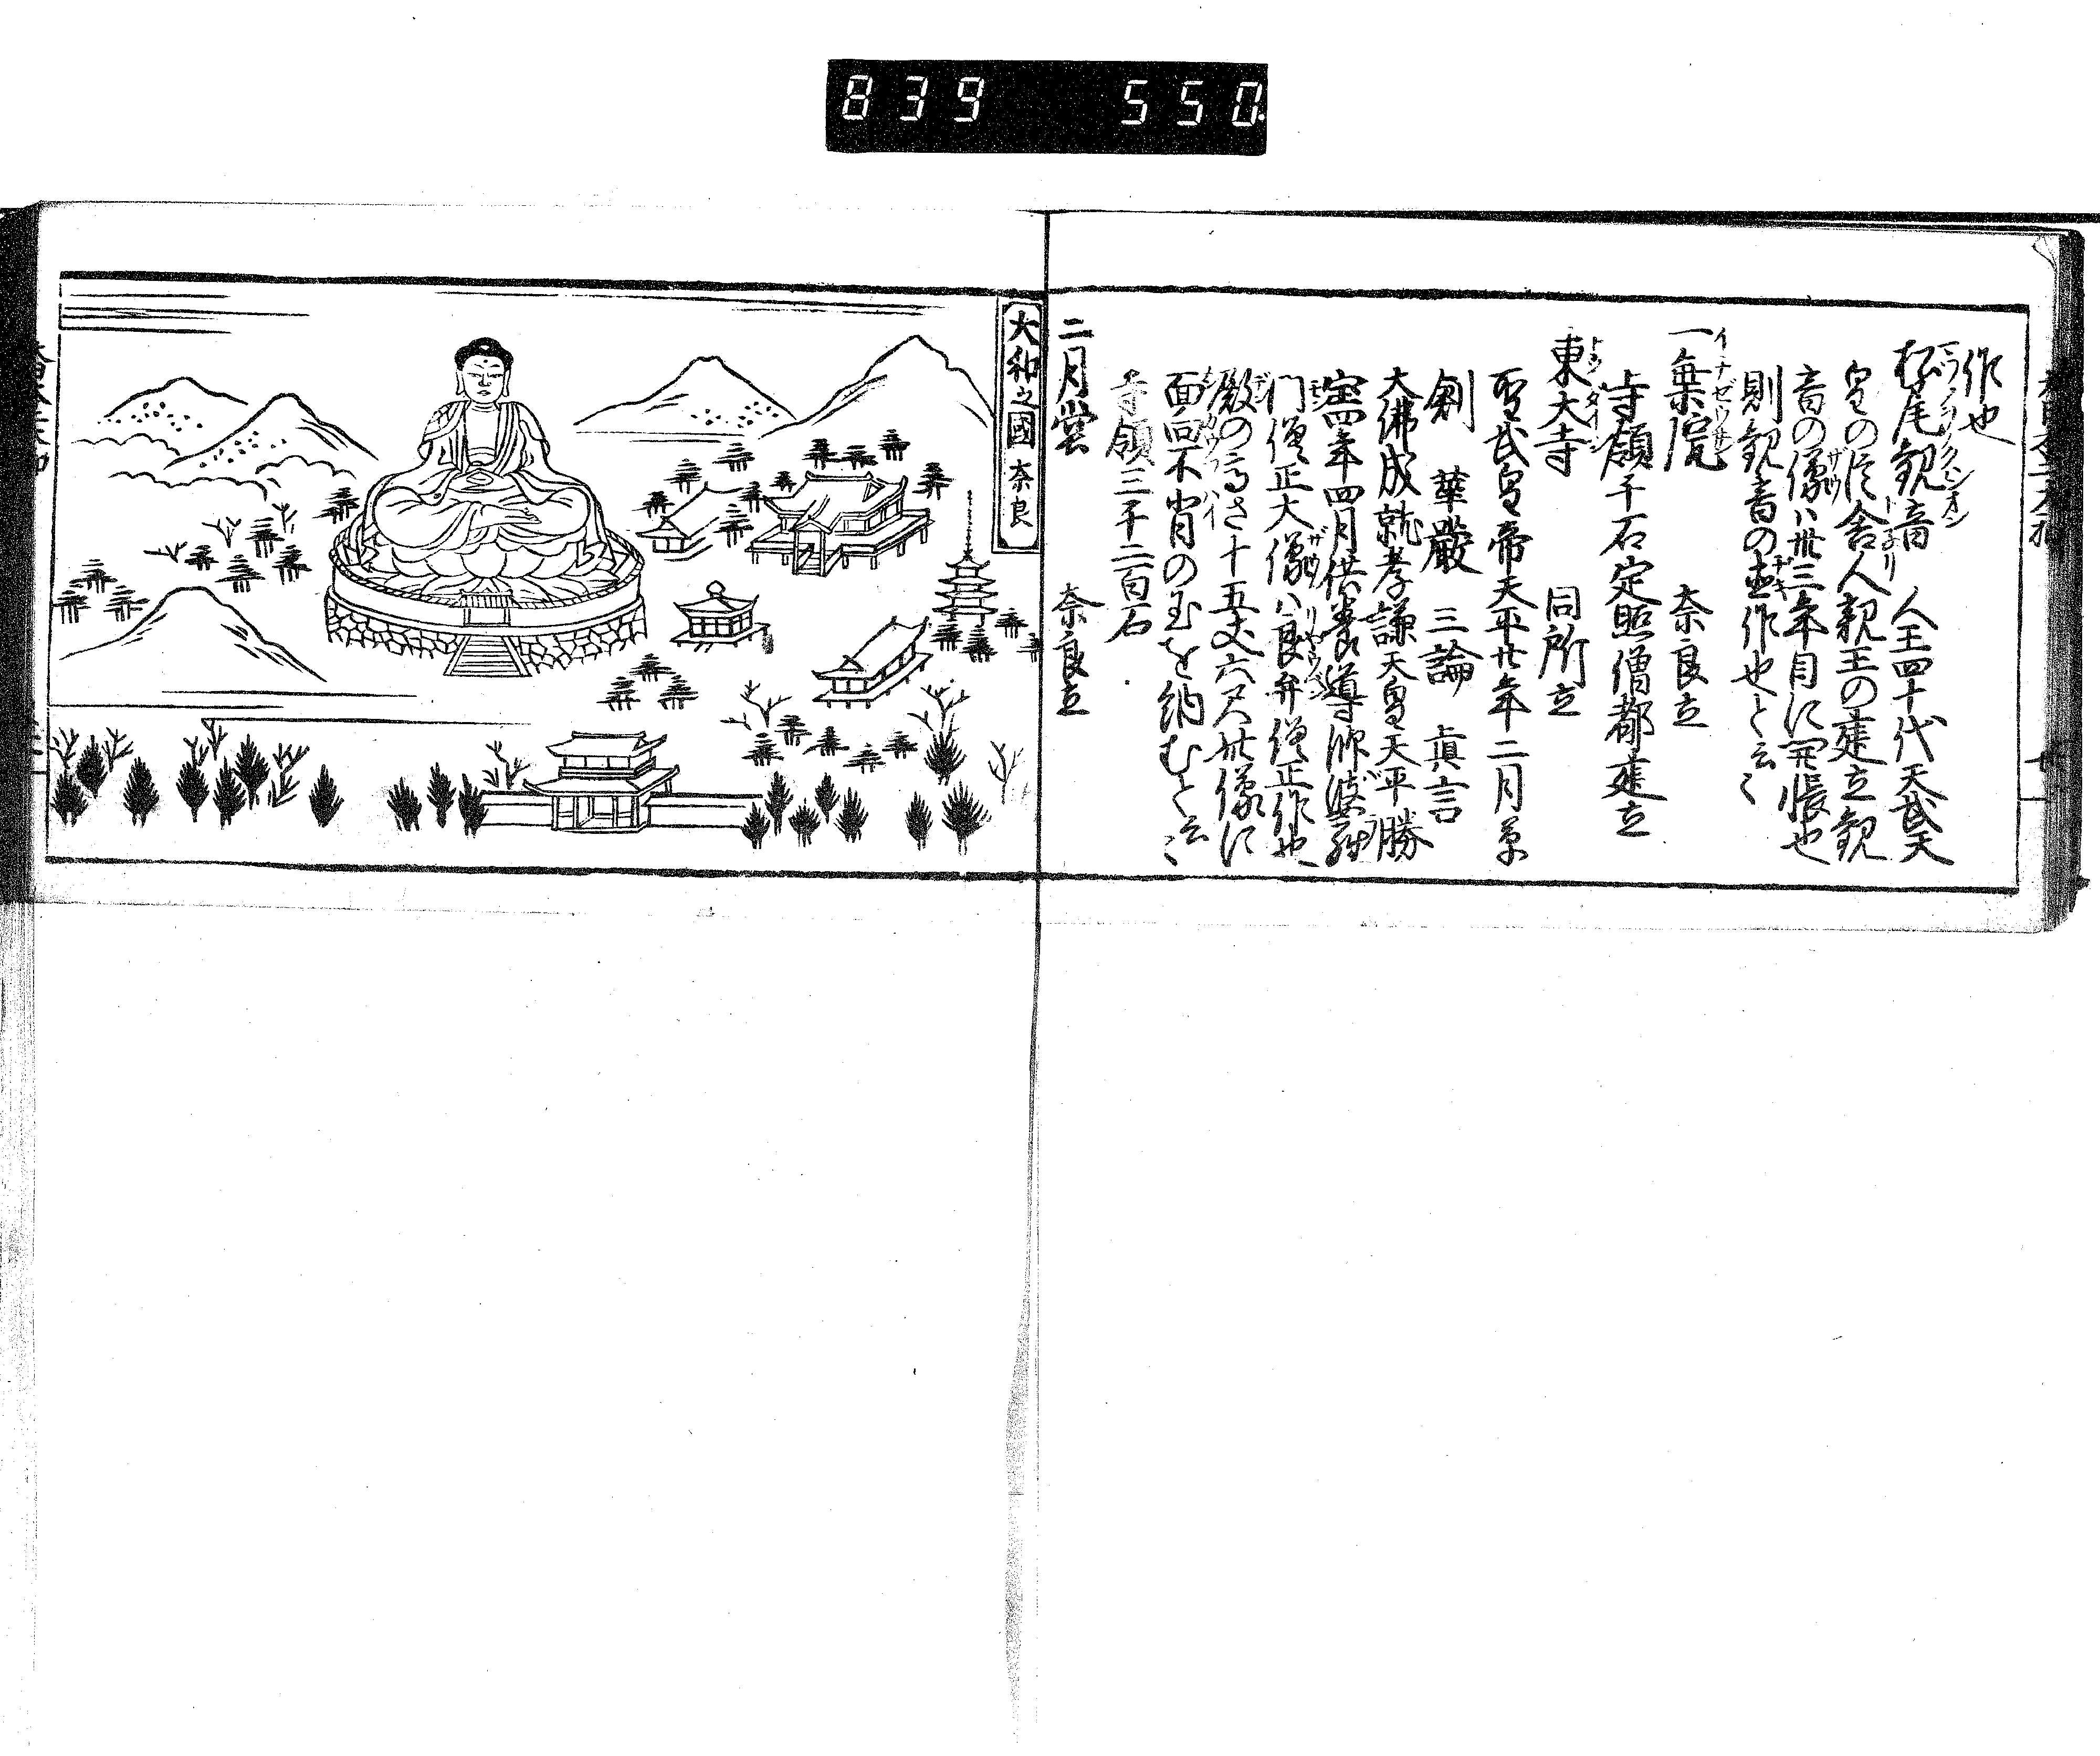 839 550
作也
尾観音 人王四十代天武天
皇の臣舎人親王の建立観
音の像ハ卅三年目に開帳也
則観音の直作也と云〻
一乗院 奈良立
寺領千石定照僧都建立
東大寺 同所立
聖武皇帝天平廿年二月草
創 華嚴 三論 眞言
大佛成就孝謙天皇天平勝
宝四年四月供養導師波羅
門僧正大像ハ良弁僧正作也
殿の高さ十五丈六尺此像に
面向不背の玉を納むと云〻
寺領三千二百石
二月堂 奈良立
大和之國 奈良